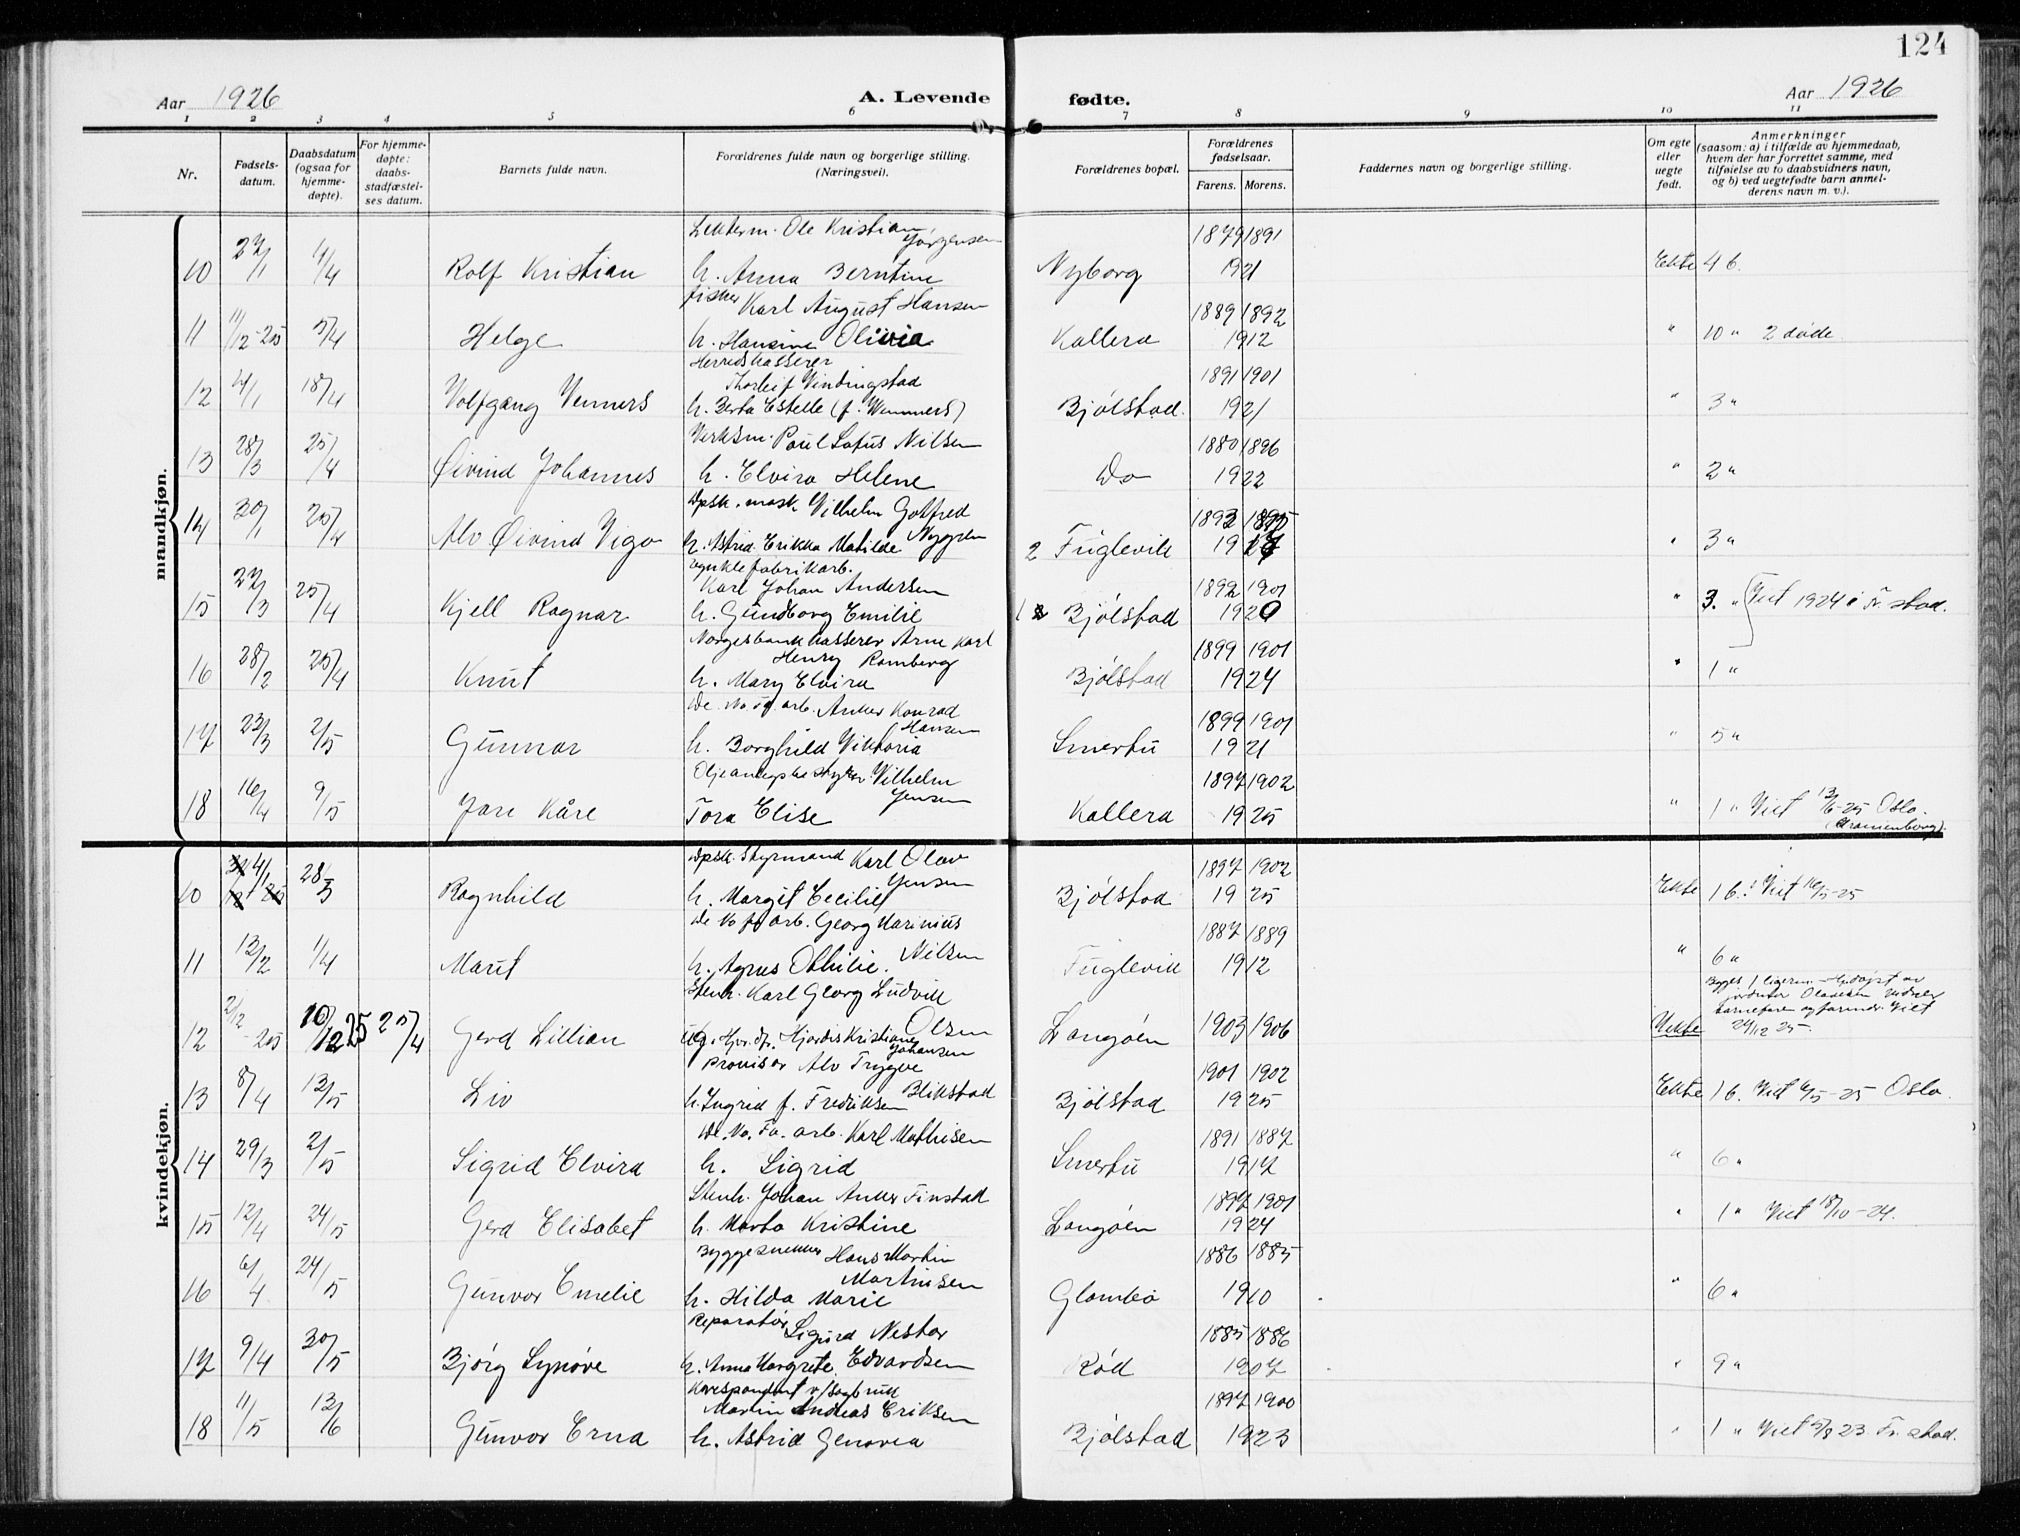 124
Aar 1926 A. Levende fødte. Aar 1926
1 2 3 4 5 6 7 8 9 10 11
Nr. Fødsels-datum. Daabsdatum (ogsaa for hjemme-døpte). For hjemme-døpte: daabs-stadfæstel-ses datum. Barnets fulde navn. Forældrenes fulde navn og borgerlige stilling. (Næringsvei). Forældrenes bopæl. Forældrenes fødselsaar. Farens. Morens. Faddernes navn og borgerlige stilling. Om egte eller uegte født. Anmerkninger (saasom: a) i tilfælde av hjemmedaab, hvem der har forrettet samme, med tilføielse av to daabsvidners navn, og b) ved uegtefødte barn anmel-derens navn m. v.).
mandkjøn.
Ole Kristian Jørgensen 1879 1891
10 27/1 4/4 Rolf Kristian h. Anna Berntine Nyborg 1921 Ekte 4 b.
fisker Karl August Hansen 1889 1892
11 11/12-25 5/4 Helge h. Hansine Olivia Kallera 1912 " 10 " 2 døde
Herredskasserer Thorleif Vindingstad 1891 1901
12 4/1 18/4 Volfgang Venners h. Berta Estelle (f. Wenners) Bjølstad. 1921 " 3 "
Verksm. Paul Lofus Nilsen 1880 1896
13 28/3 25/4 Øivind Johannes h. Elvira Helene Do 1922 " 2 "
Dpsk. mask Vilhelm Gotfred Nygren 1893 1895
14 30/1 25/4 Alv Øivind Vigo h. Astrid Erikka Matilde 2 Fuglevik 1917 " 3 "
fabrikarb. Karl Johan Andersen 1892 1901
15 27/3 25/4 Kjell Ragnar h. Gundborg Emilie 1 Bjølstad 1920 " 3. " Viet 1924 i Fr. stad.
Norgesbankkasserer Arne Karl Henry Ramberg 1899 1901
16 28/2 25/4 Knut h. Mary Elvira Bjølstad 1924 " 1 "
De. No. fa. arb. Anker Konrad Hansen 1899 1901
17 23/3 2/5 Gunnar h. Borghild Viktoria Smertu 1921 " 5 "
Vilhelm Jensen 1897 1902
18 16/4 9/5 Jan Kåre Tora Elise Kallera 1925 " 1 " Viet 13/6-25 Oslo. (Uranienborg).
kvindekjøn.
Dpsk. Styrmand Karl Olav Jensen 1897 1902
10 4/1 28/3 Ragnhild h. Margit Cecilie Bjølstad 1925 Ekte 1 b. Viet 16/5-25
De No fa arb. Georg Marinius Nilsen 1887 1889
11 13/2 1/4 Marit h. Agnes Othilie. Fuglevik 1912 " 6 "
Stenh. Karl Georg Ludvik Olsen
12 2/12-25 10/12 25 25/4 Gerd Lillian Ug. Hjv. dtr. Hjørdis Kristiane Johansen Langøen 1903 1906 Uekte 24/12 25.
provisor Alv Trygve Blikstad 1901 1902
13 8/4 13/5 Liv h. Ingrid f. Fredriksen Bjølstad 1925 Ekte 1 b. Viet 6/5-25 Oslo.
De. No. Fa. arb. Karl Mathisen 1891 1887
14 29/3 2/5 Sigrid Elvira h. Sigrid Smertu 1917 " 6 "
Stenh. Johan Anker Finstad 1897 1901
15 12/4 24/5 Gerd Elisabet h. Marta Kristine Langøen 1924 " 1 " Viet 18/10-24.
Byggesnekker Hans Martin Martinsen 1886 1885
16 6/4 24/5 Gunvor Emelie h. Hilda Marie Glombo 1910 " 6 "
Reparatør Sigurd Nestor Edvardsen 1885 1886
17 9/4 30/5 Bjørg Synøve h. Anna Margrete Rød 1907 " 9 "
Korespondent v/Sagbruk Martin Andreas Eriksen 1897 1900
18 11/5 13/6 Gunvor Erna h. Astrid Genovea Bjølstad 1923 " 1 " Viet 5/8 23 Fr. stad.